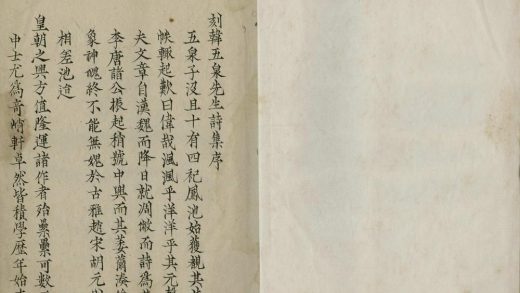 刻韓五泉先生詩集序
五泉子沒且十有四祀鳳池始獲覩其
帙輙起歎曰偉哉渢渢乎洋洋乎其元
夫文章自漢魏而降日就凋敝而詩爲
李唐諸公振起稍號中興而其萎薾湊
象神魄終不能無媿於古雅趙宋胡元
相差池迨
皇朝之興方值隆運諸作者殆纍纍可數
中士尤爲奇崎軒卓然皆積學歷年始